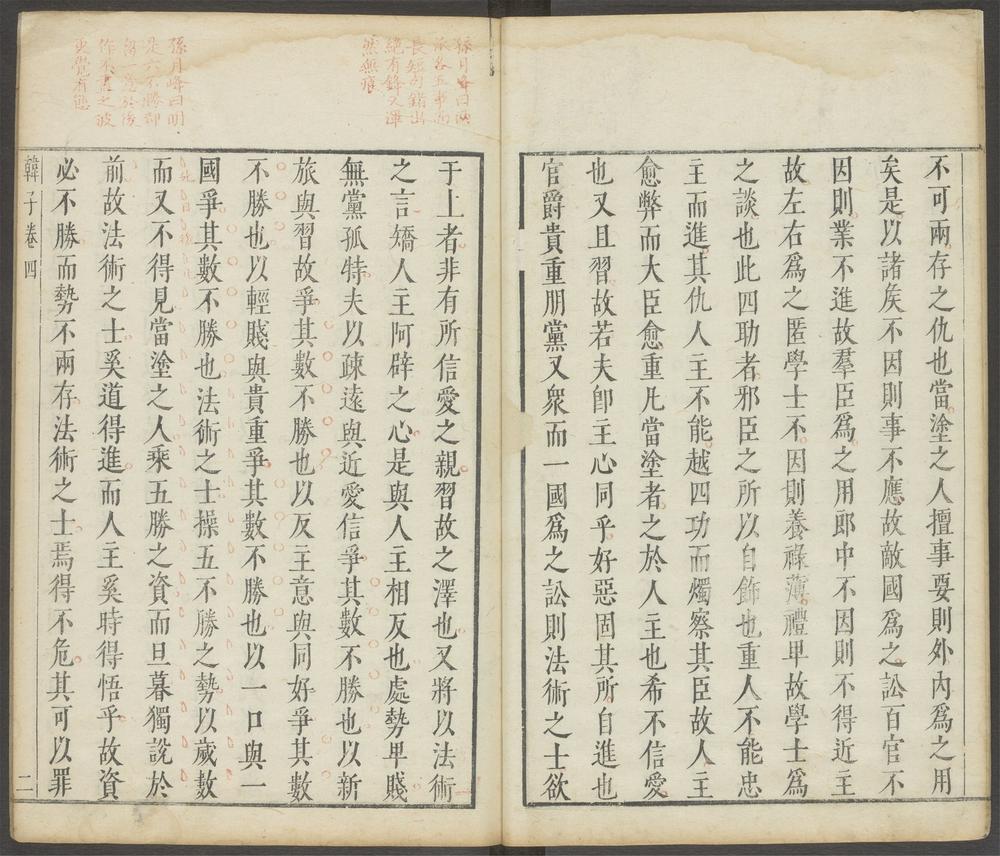 不可兩存之仇也當塗之人擅事要則外內爲之用
矣是以諸矦不因則事不應故敵國爲之訟百官不
因則業不進故羣臣爲之用郎中不因則不得近主
故左右爲之匿學士不因則養祿薄禮卑故學士爲
之談也此四助者邪臣之所以自飾也重人不能忠
主而進其仇人主不能越四功而燭察其臣故人主
愈弊而大臣愈重凡當塗者之於人主也希不信愛
也又且習故若夫卽主心同乎好惡固其所自進也
官爵貴重朋黨又衆而一國爲之訟則法術之士欲
孫月峰曰兩
派各五事而
長短句錯出
絕有鋒又渾
然無痕
孫月峰曰明
是六不勝却
留一意於後
作不盡之波
更覺有態
于上者非有所信愛之親習故之澤也又將以法術
之言矯人主阿辟之心是與人主相反也處勢卑賤
無黨孤特夫以疎遠與近愛信爭其數不勝也以新
旅與習故爭其數不勝也以反主意與同好爭其數
不勝也以輕賤與貴重爭其數不勝也以一口與一
國爭其數不勝也法術之士操五不勝之勢以歲數
而又不得見當塗之人乘五勝之資而旦暮獨說於
前故法術之士奚道得進而人主奚時得悟乎故資
必不勝而勢不兩存法術之士焉得不危其可以罪
韓子卷四
二